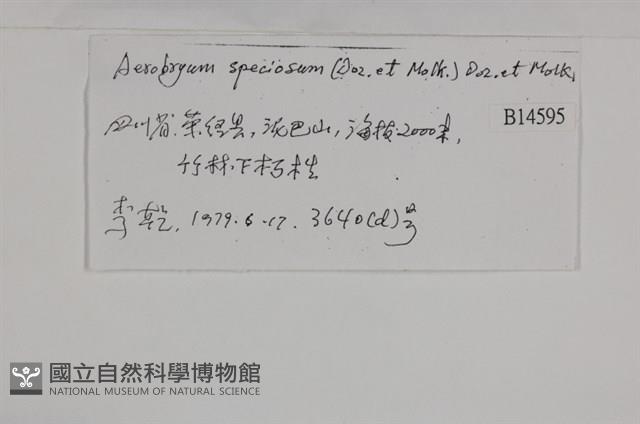 Aerobryum speciosum (Doz. et Molk.) Doz. et Molk.
四川省.荥经县,泥巴山,海拔2000米,
B14595
竹林下朽木
李乾, 1979.6.17. 3640(d)号
國立自然科學博物館
NATIONAL MUSEUM OF NATURAL SCIENCE